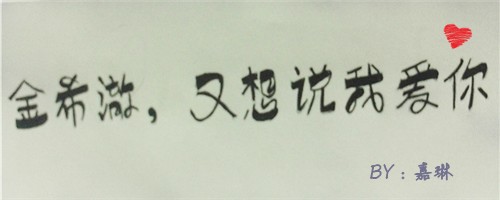 金希澈，又想说我爱你
BY：嘉琳